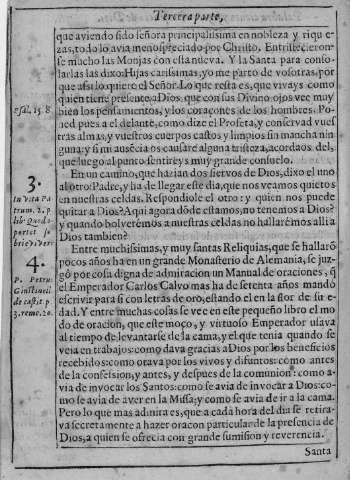 Tercera parte,
que aviendo sido señora principalissima en nobleza y rique
zas, todo lo avia menospreciado por Christo. Entristecieron-
se mucho las Monjas con esta nueva. Y la Santa para conso-
larlas las dixo: Hijas carissimas, yo me parto de vosotras, por
que assi lo quiere el Señor. Lo que resta es, que vivays como
quien tiene presente a Dios, que con sus Divinos ojos vee muy
bien los pensamientos, y los coraçones de los hombres. Po-
Psal. 15. 8.
ned pues a el delante, como dize el Profeta, y conservad vues
tras almas, y vuestros cuerpos castos y limpios sin mancha nin
guna; y si mi ausēcia os causare alguna tristeza, acordaos del,
que luego al punto sentireys muy grande consuelo.
3.
En un camino, que hazian dos siervos de Dios, dixo el uno
In vita Pa
al otro: Padre, y ha de llegar este dia, que nos veamos quietos
trum. 2. p
en nuestras celdas. Respondiole el otro: y quien nos puede
quitar a Dios? Aqui agora dōde estamos, no tenemos a Dios?
portet so
y quando bolverémos a nuestras celdas no hallarémos alli a
brie vivere
Dios tambien?
4.
Entre muchissimas, y muy santas Reliquias, que se hallarō
pocos años ha en un grande Monasterio de Alemania, se juz
P. Petrus
gò por cosa digna de admiracion un Manual de oraciones, q̄
el Emperador Carlos Calvo mas ha de setenta años mandó
de casit. p
escrivir para si con letras de oro, estando el en la flor de su e-
3. reme. 20.
dad. Y entre muchas cosas se vee en este pequeño libro el mo
do de oracion, que este moço, y virtuoso Emperador usava
al tiempo de levantarse de la cama, y el que tenia quando se
veia en trabajos: como dava gracias a Dios por los beneficios
recebidos: como orava por los vivos y difuntos: como antes
de la confession, y antes, y despues de la comunion: como a-
via de invocar los Santos: como se avia de invocar a Dios: co-
mo se avia de aver en la Missa; y como se avia de ir a la cama.
Pero lo que mas admira es, que a cada hora del dia se retira-
va secretamente a hazer oracon particular de la presencia de
Dios, a quien se ofrecia con grande sumision y reverencia.
Santa